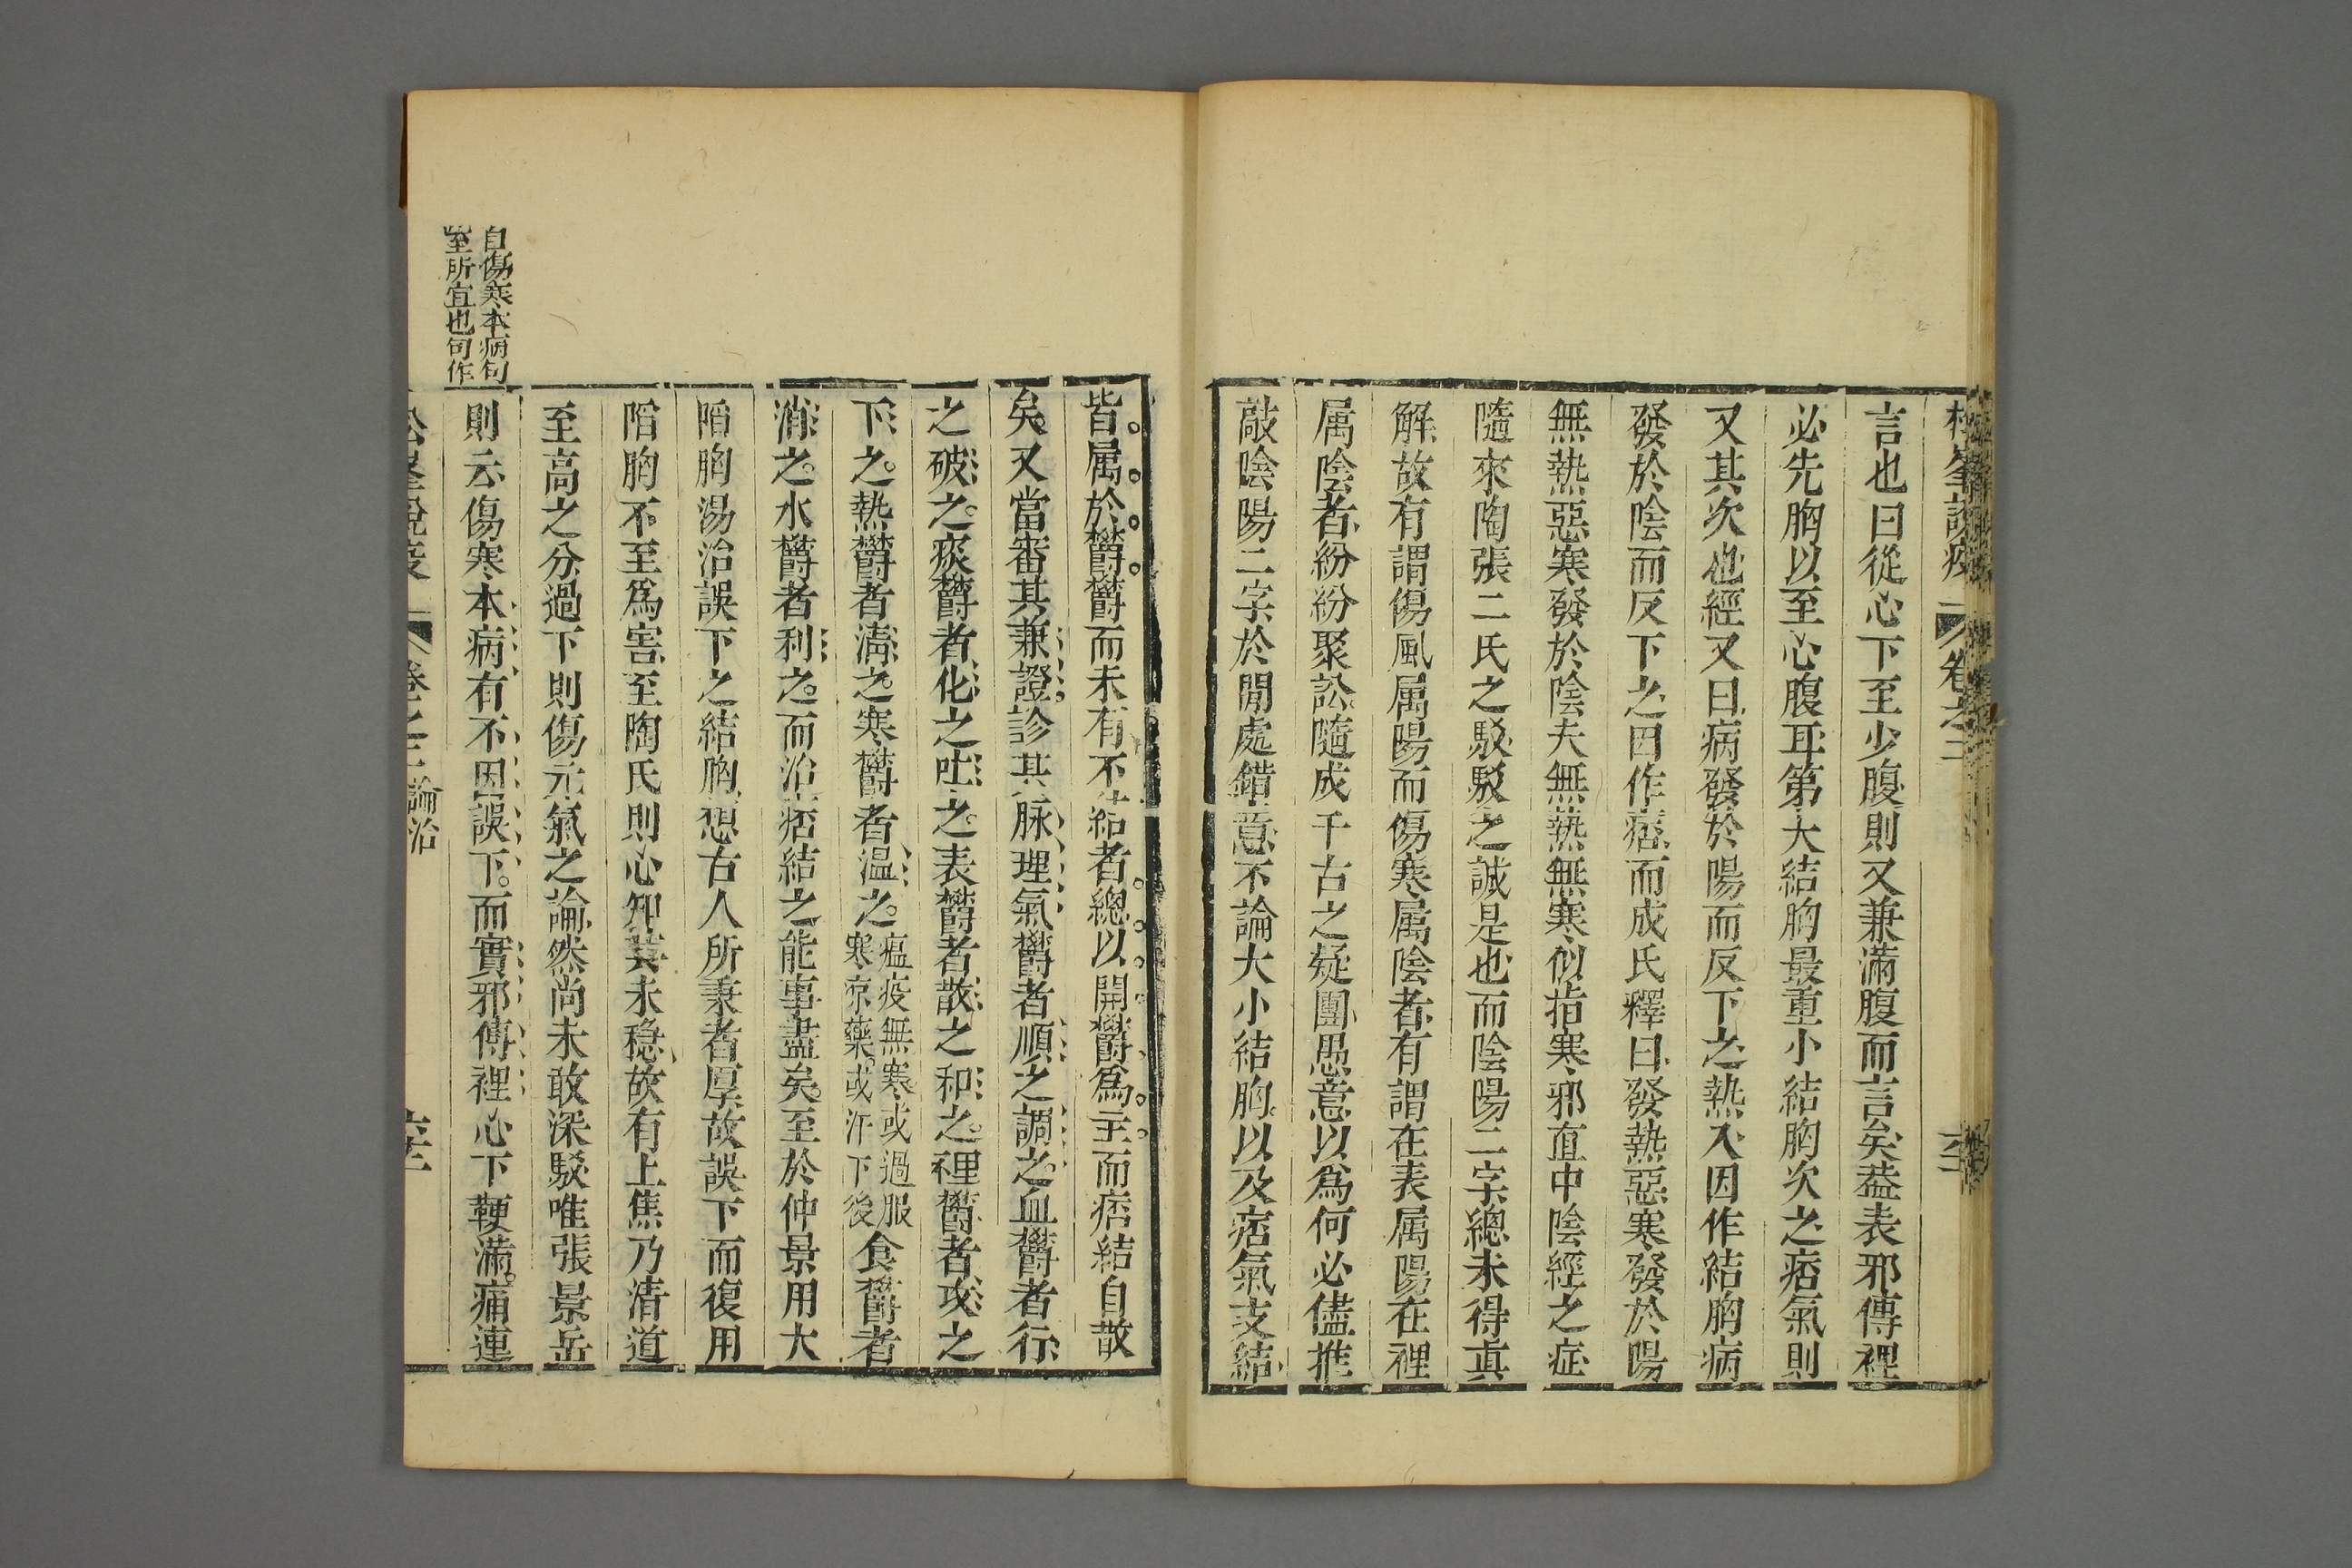 松峯說疫 卷之二
言也曰從心下至少腹則又兼滿腹而言矣蓋表邪傳裡
必先胸以至心腹耳第大結胸最重小結胸次之痞氣則
又其次也經又曰病發於陽而反下之熱入因作結胸病
發於陰而反下之因作痞而成氏釋曰發熱惡寒發於陽
無熱惡寒發於陰夫無熱無寒似指寒邪直中陰經之症
隨來陶張二氏之駁駁之誠是也而陰陽二字總未得真
解故有謂傷風属陽而傷寒属陰者有謂在表属陽在裡
属陰者紛紛聚訟隨成千古之疑團愚意以為何必儘推
敲陰陽二字於閒處錯意不論大小結胸以及痞氣支結
皆属於欝欝而未有不結者總以開欝為主而痞結自散
矣又當審其兼證診其脉理氣欝者順之調之血欝者行
之破之痰欝者化之吐之表欝者散之和之裡欝者攻之
下之熱欝者清之寒欝者温之瘟疫無寒或過服寒凉藥或汗下後食欝者
消之水欝者利之而治痞結之能事盡矣至於仲景用大
陷胸湯治誤下之結胸想古人所秉者厚故誤下而復用
陷胸不至為害至陶氏則心知其未穏故有上焦乃清道
至高之分過下則傷元氣之論然尚未敢深駁唯張景岳
則云傷寒本病有不因誤下而實邪傳裡心下鞕滿痛連
自傷寒本病句
至所宜也句作
松峯說疫 卷之二 論治